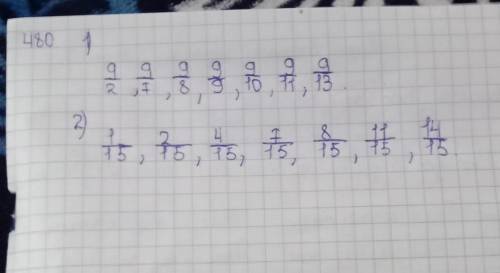 480 1)
9/2, 9/7, 9/8, 9/9, 9/10, 9/11, 9/13.
2)
1/15, 2/15, 4/15, 7/15, 8/15, 11/15, 14/15.